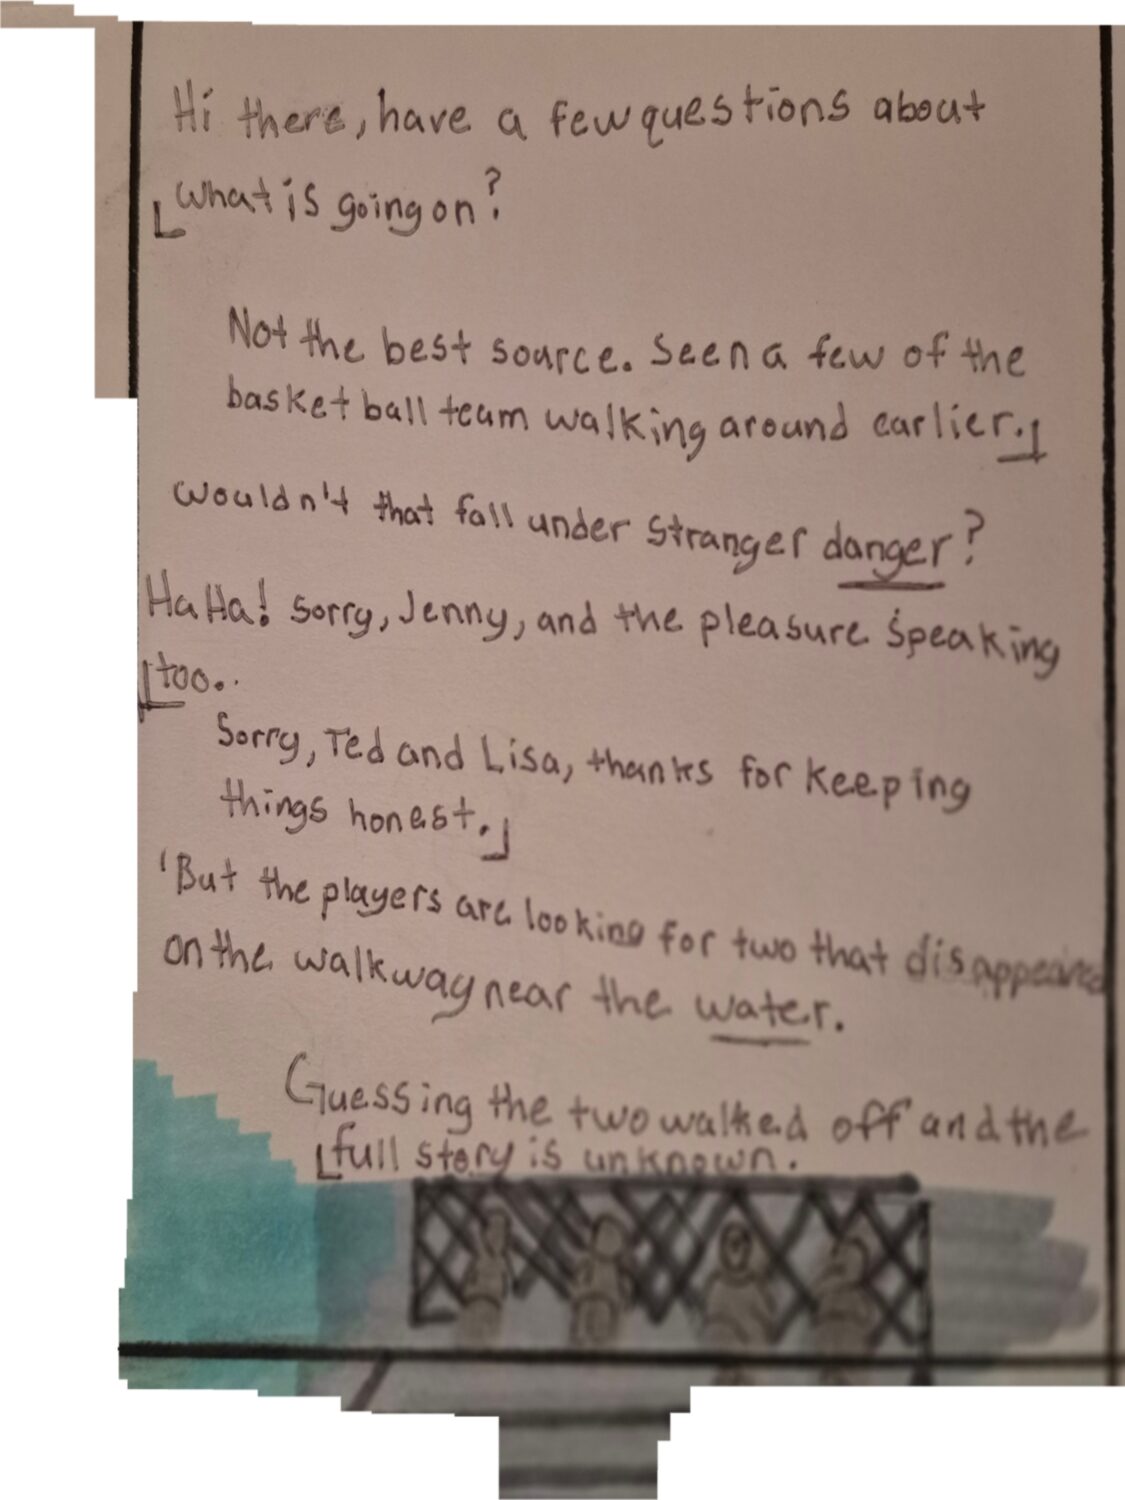 Hi there, have a few questions about
what is going on?
Not the best source. Seen a few of the
basketball team walking around earlier.
Wouldn't that fall under stranger danger?
HaHa! Sorry, Jenny, and the pleasure speaking
too.
Sorry, Ted and Lisa, thanks for keeping
things honest.
'But the players are looking for two that disappeared
on the walkway near the water.
Guessing the two walked off and the
full story is unknown.